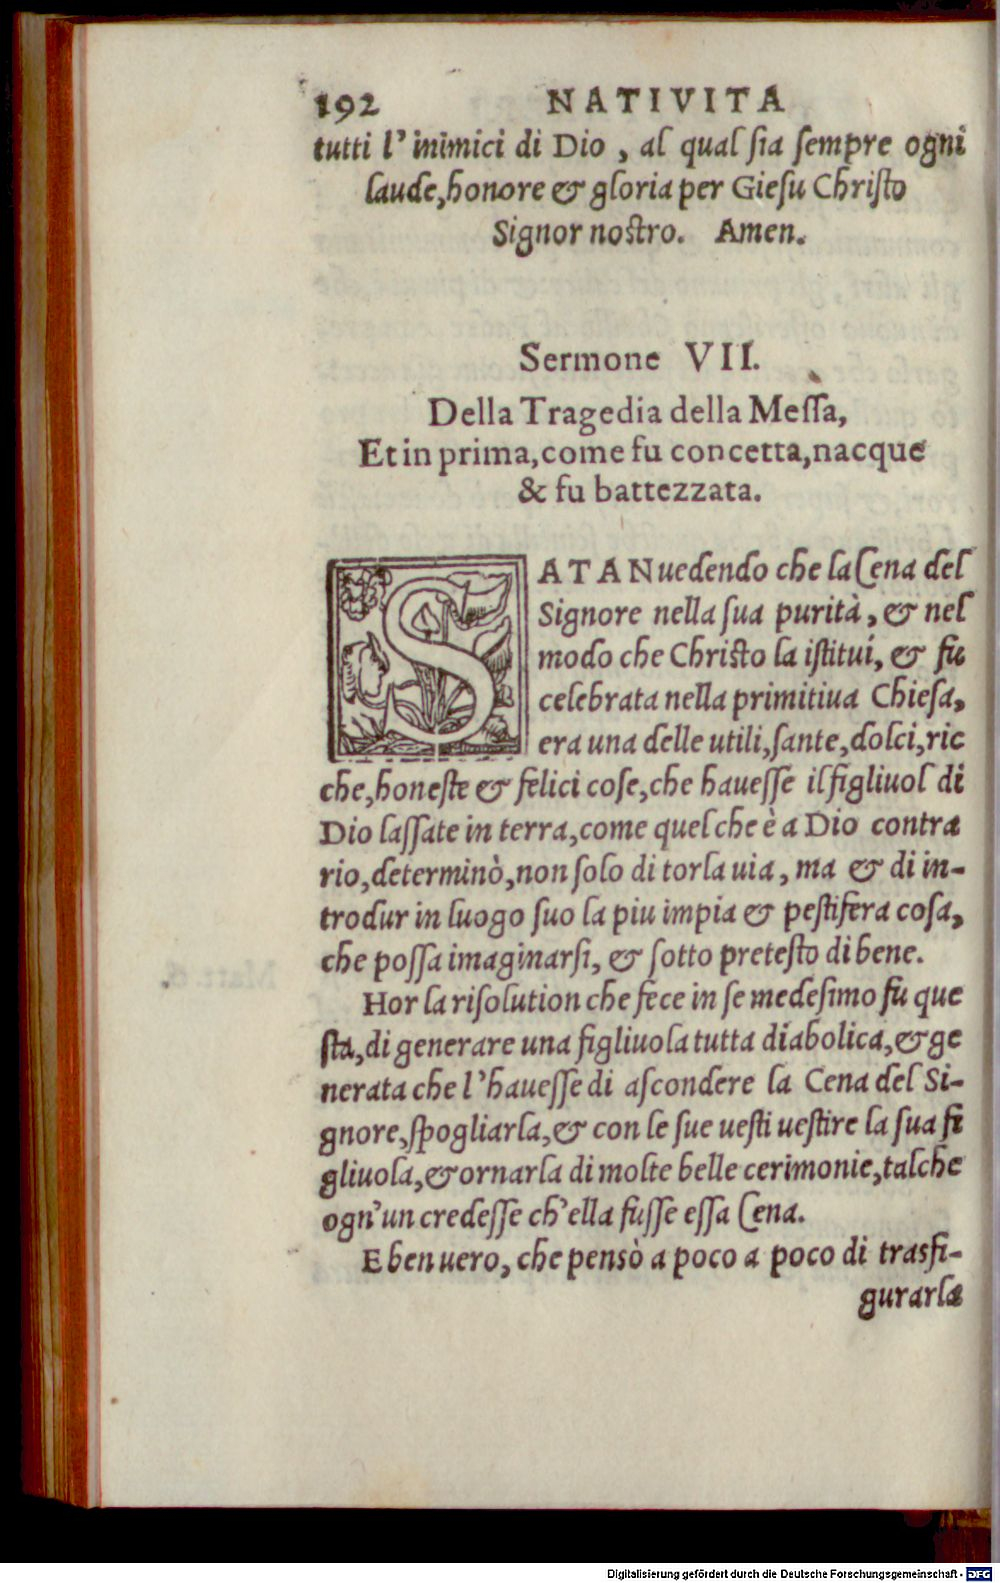 192 NATIVITA
tutti l'inimici di Dio, al qual ſia ſempre ogni
laude, honore & gloria per Gieſu Chriſto
Signor noſtro. Amen.
Sermone VII.
Della Tragedia della Meſſa,
Et in prima, come fu concetta, nacque
& fu battezzata.
SATAN uedendo che la Cena del
Signore nella ſua purità, & nel
modo che Chriſto la iſtituí, & fu
celebrata nella primitiua Chieſa,
era una delle utili, ſante, dolci, ric
che, honeſte & felici coſe, che haueſſe il figliuol di
Dio laſſate in terra, come quel che è a Dio contra
rio, determinò, non ſolo di torla uia, ma & di in-
trodur in luogo ſuo la piu impia & peſtifera coſa,
che poſſa imaginarſi, & ſotto preteſto di bene.
Hor la riſolution che fece in ſe medeſimo fu que
ſta, di generare una figliuola tutta diabolica, & ge
nerata che l'haueſſe di aſcondere la Cena del Si-
gnore, ſpogliarla, & con le ſue ueſti ueſtire la ſua fi
gliuola, & ornarla di molte belle cerimonie, talche
ogn'un credeſſe ch'ella fuſſe eſſa Cena.
E ben uero, che pensò a poco a poco di trasfi-
gurarla
Digitalisierung gefördert durch die Deutsche Forschungsgemeinschaft - DFG